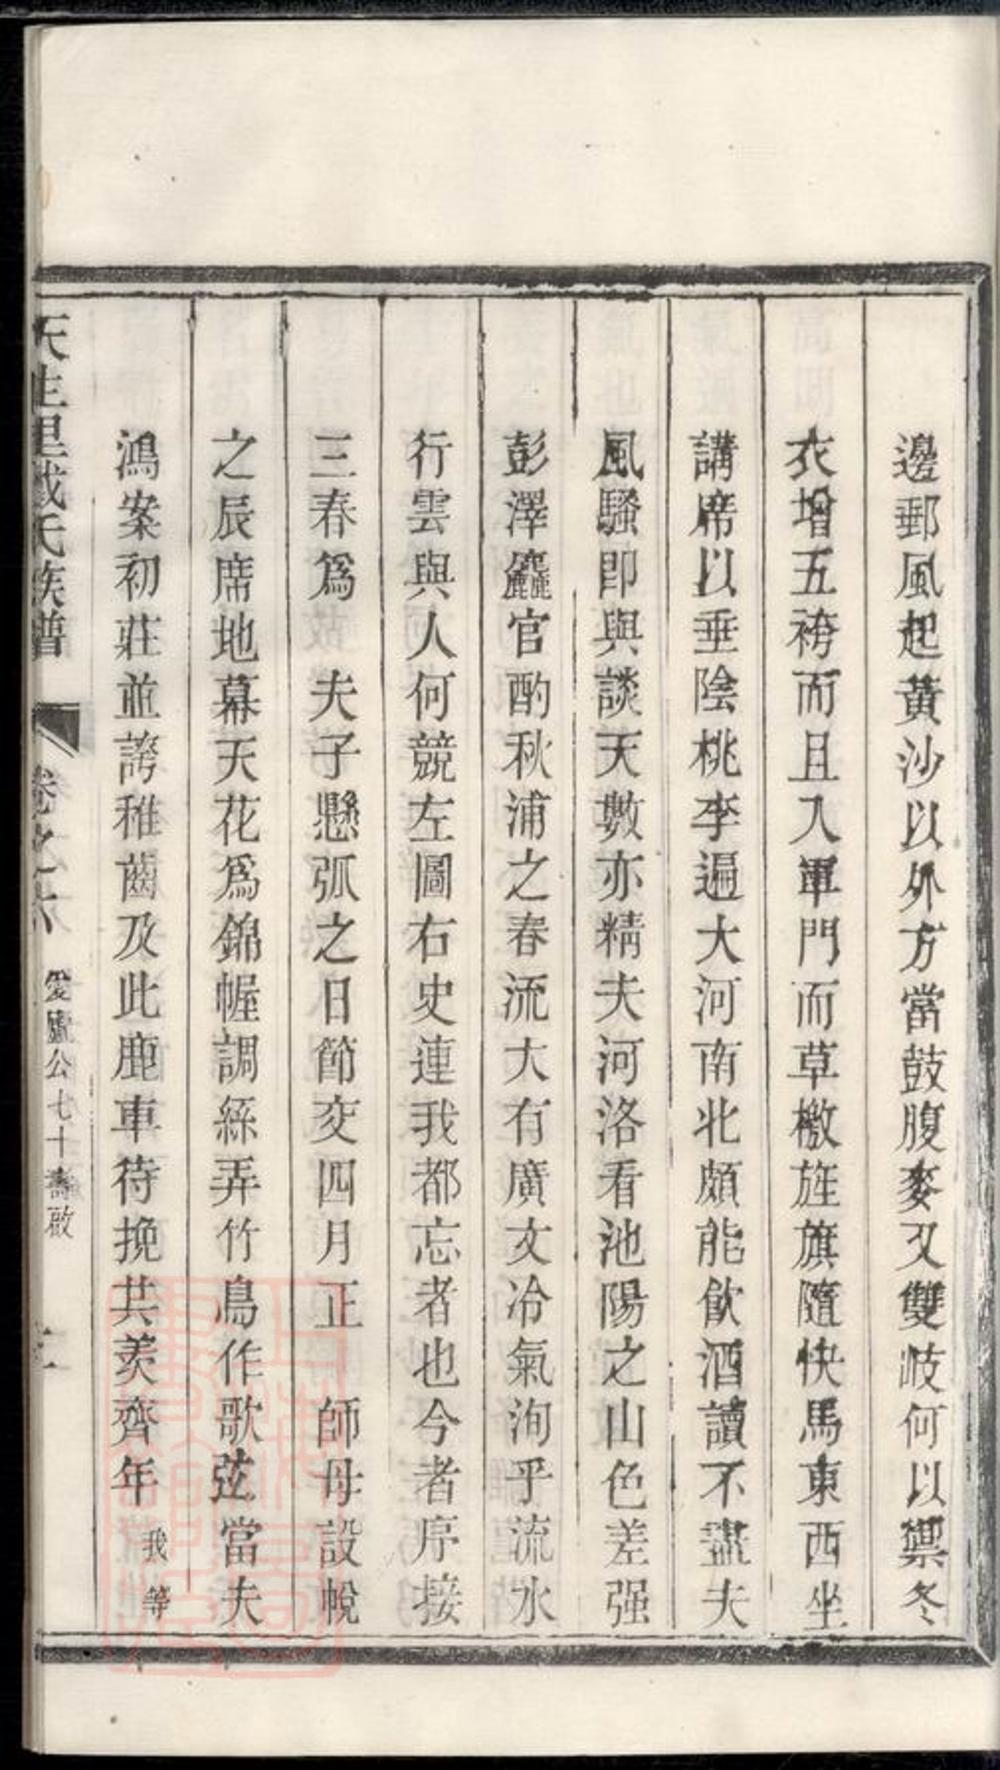 邊郵風起黃沙以外方當鼓腹麥又雙岐何以禦冬
衣增五袴而且入軍門而草檄旌旗隨快馬東西坐
講席以垂陰桃李遍大河南北頗能飲酒讀不盡夫
風騷即與談天數亦精夫河洛看池陽之山色差强
彭澤麤官酌秋浦之春流大有廣文冷氣洵乎流水
行雲與人何競左圖右史連我都忘者也今者序接
三春爲　夫子懸弧之日節交四月正　師母設帨
之辰席地幕天花爲錦幄調絲弄竹鳥作歌弦當夫
鴻案初莊並誇稚齒及此鹿車待挽共羨齊年我等
天生里戴氏族譜　卷之六　愛廬公七十壽啟